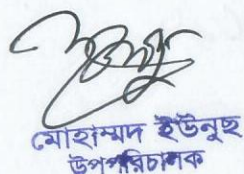 মোহাম্মদ ইউনুছ
উপপরিচালক